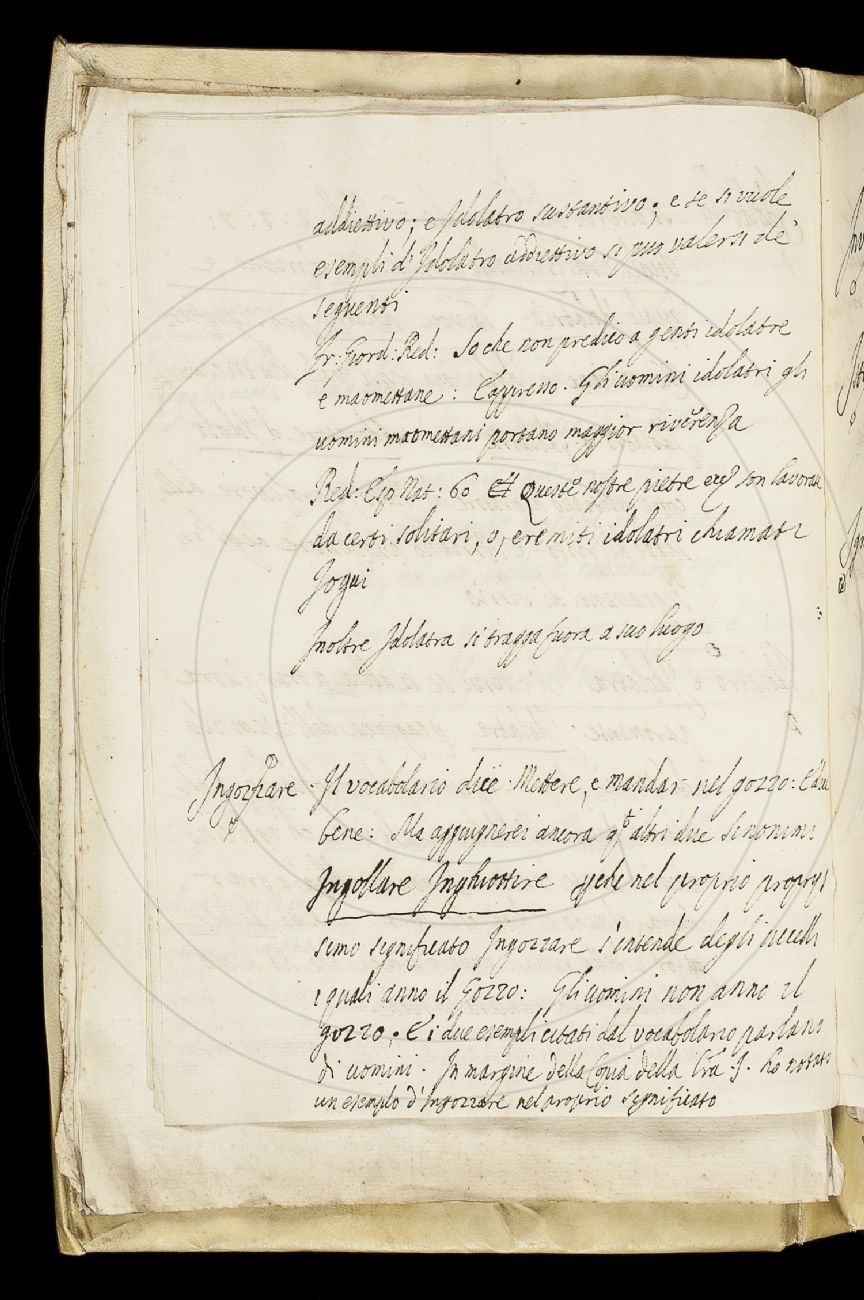 addiettivo; e Idolatro sustantivo; e se si vuole
esempli d'Idolatro addiettivo si può valersi de'
seguenti
Fr: Giord: Red: So che non predico a genti idolatre
e maomettane: E appresso. Gli uomini idolatri gli
uomini maomettani portano maggior riverenza
Red: Esp Nat: 60 Queste nostre pietre son lavorate
da certi solitari, o, eremiti idolatri chiamati
Jogui
Inoltre Idolatra si tragga fuora a suo luogo
Ingozzare. Il vocabolario dice. Mettere, e mandar nel gozzo: E dice
bene: Ma aggiugnerei ancora altri due sinonimi
Ingollare Inghiottire che nel proprio propriis
simo significato Ingozzare s'intende degli uccelli
i quali anno il Gozzo: Gli uomini non anno il
gozzo; E i due esempli citati dal vocabolario parlano
di uomini. In margine della Copia della Lra. I. ho notato
un esemplo d'Ingozzare nel proprio significato